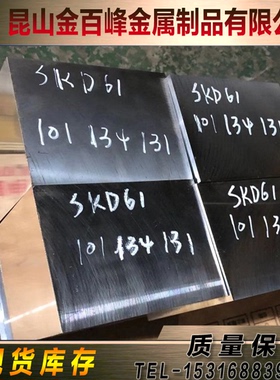 昆山金百峰金属制品有限公
SKD61
101 134 131
SKD61
101 134 131
SKD61
101 134 131
SKD61
101 134 131
现货库存
质量保
TEL-1531688839